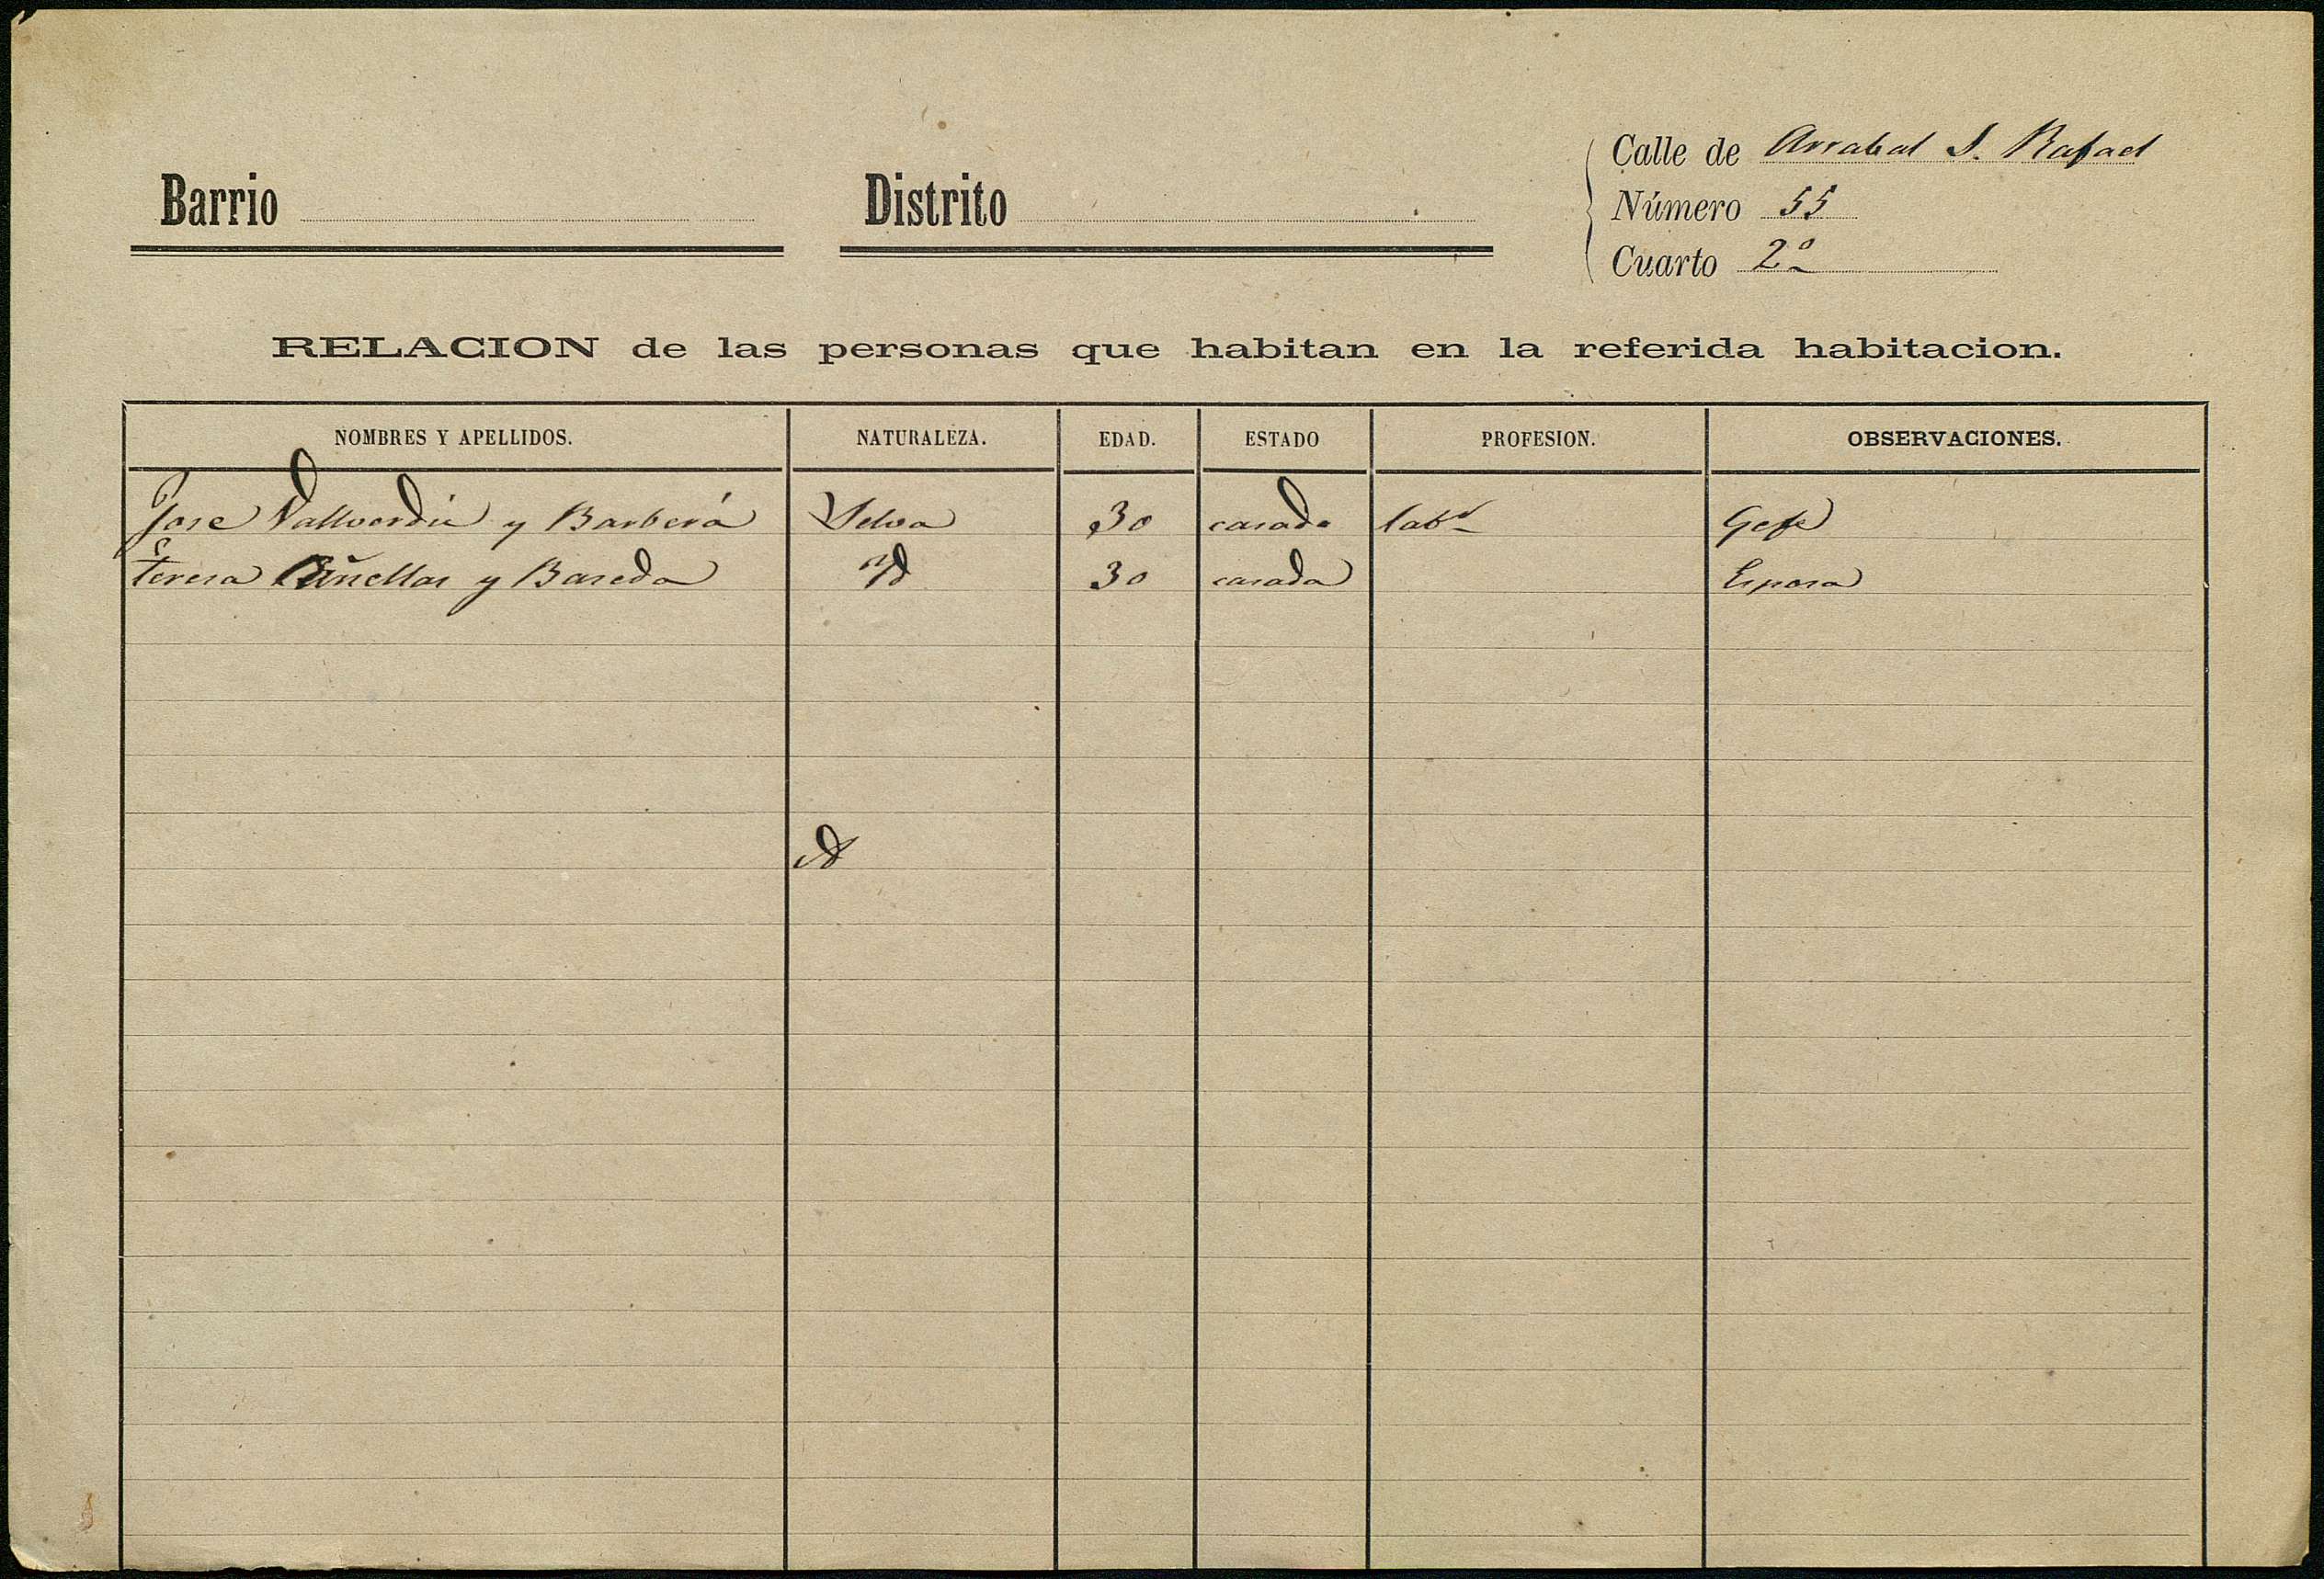 Calle de Arrabal S. Rafael
Barrio Distrito Número 55
Cuarto 2º
RELACION de las personas que habitan en la referida habitacion.
NOMBRES Y APELLIDOS. NATURALEZA. EDAD. ESTADO PROFESION. OBSERVACIONES.
Jose Vallverdú y Barberá Selva 30 casado labr Gefe
Teresa y Baseda Yd 30 casada Esposa